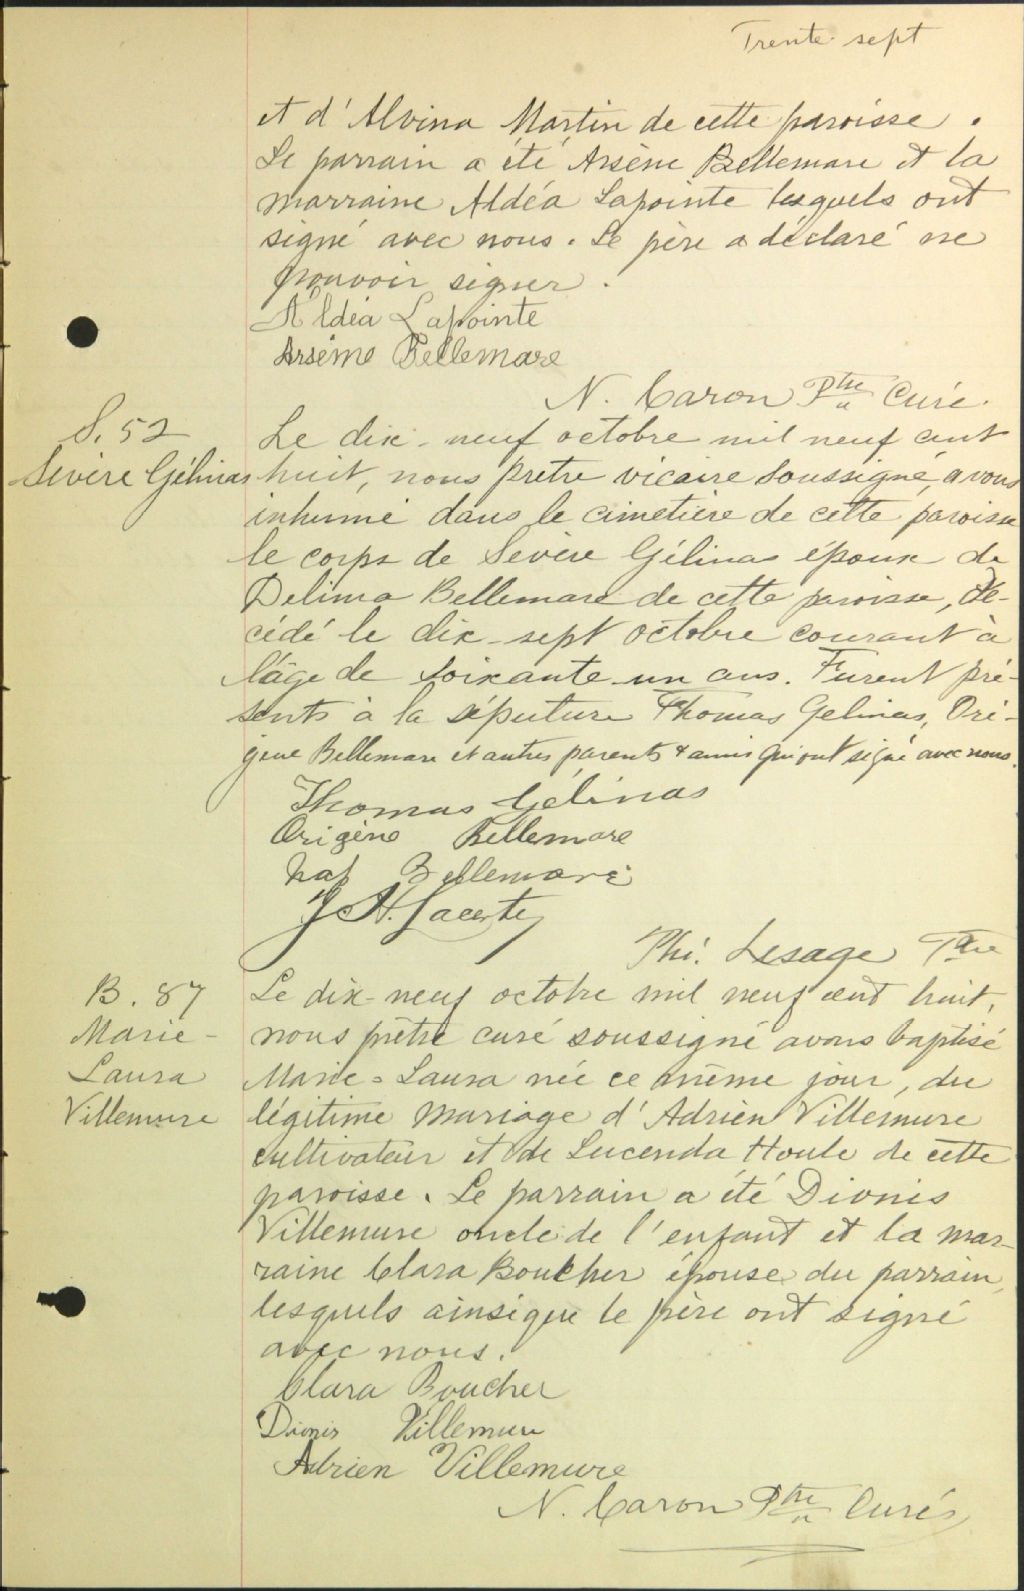 Trente sept
et d'Alvina Martin de cette paroisse.
Le parrain a été Arsène Bellemare et la
marraine Aldéa Lapointe lesquels ont
signé avec nous. Le père a déclaré ne
pouvoir signer.
Aldéa Lapointe
Arsème Bellemare
N. Caron Ptre Curé.
S. 52
Sévère Gélinas
Le dix-neuf octobre mil neuf cent
huit, nous prêtre vicaire soussigné, avons
inhumé dans le cimetière de cette paroisse
le corps de Sévère Gélinas époux de
Delima Bellemare de cette paroisse, dé-
cédé le dix-sept octobre courant à
l'âge de soixante-un ans. Furent pré-
sents à la sépulture Thomas Gelinas, Ori-
gène Bellemare et autres parents & amis qui ont signé avec nous.
Thomas Gélinas
Origène Bellemare
Nap Bellemare
J. H. Lacerte
Phi. Lesage Ptre
B. 87
Marie-
Laura
Villemure
Le dix-neuf octobre mil neuf cent huit,
nous prêtre curé soussigné avons baptisé
Marie-Laura née ce même jour, du
légitime mariage d'Adrien Villemure
cultivateur et de Lucenda Houle de cette
paroisse. Le parrain a été Dionis
Villemure oncle de l'enfant et la mar-
raine Clara Boucher épouse du parrain,
lesquels ainsi que le père ont signé
avec nous.
Clara Boucher
Dionis Villemure
Adrien Villemure
N. Caron Ptre Curé